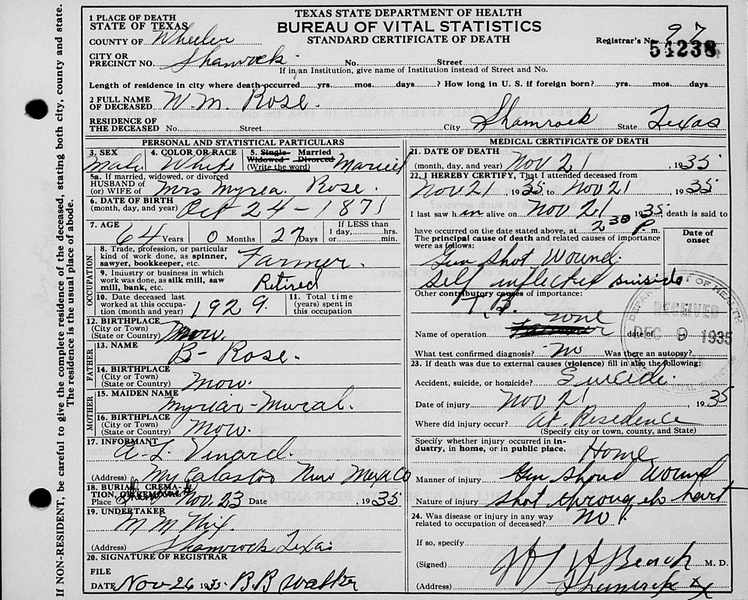 TEXAS STATE DEPARTMENT OF HEALTH
BUREAU OF VITAL STATISTICS
STANDARD CERTIFICATE OF DEATH
1 PLACE OF DEATH
STATE OF TEXAS
COUNTY OF Wheeler
Registrar's No. 97
54238
CITY OR PRECINCT NO. Shamrock No. Street
If in an Institution, give name of Institution instead of Street and No.
Length of residence in city where death occurred yrs. mos. days? How long in U. S. if foreign born? yrs. mos. days
2 FULL NAME OF DECEASED W. M. Rose.
RESIDENCE OF THE DECEASED No. Street City Shamrock State Texas
PERSONAL AND STATISTICAL PARTICULARS
3. SEX male 4. COLOR OR RACE White 5. Single Married Widowed Divorced (Write the word) Married
5a. If married, widowed, or divorced HUSBAND OF (or) WIFE OF Mrs Myrea Rose.
6. DATE OF BIRTH (month, day, and year) Oct 24 - 1871
7. AGE 64 Years 0 Months 27 Days If LESS than 1 day, hrs. or min.
OCCUPATION
8. Trade, profession, or particular kind of work done, as spinner, sawyer, bookkeeper, etc. Farmer.
9. Industry or business in which work was done, as silk mill, saw mill, bank, etc. Retired
10. Date deceased last worked at this occupation (month and year) 1929.
11. Total time (years) spent in this occupation
12. BIRTHPLACE (City or Town) (State or Country) Mow.
FATHER
13. NAME B- Rose.
14. BIRTHPLACE (City or Town) (State or Country) Mow.
MOTHER
15. MAIDEN NAME
16. BIRTHPLACE (City or Town) (State or Country) Mow.
17. INFORMANT A. L. Vinard.
(Address) New Mexico
18. BURIAL, CREMATION, OR REMOVAL
Place Date Nov 23 1935
19. UNDERTAKER M M Nix.
(Address) Shamrock Texas
20. SIGNATURE OF REGISTRAR
FILE DATE Nov 26 1935 B B Walker
MEDICAL CERTIFICATE OF DEATH
21. DATE OF DEATH (month, day, and year) Nov 21 1935
22. I HEREBY CERTIFY, That I attended deceased from
Nov 21 1935 to Nov 21 1935
I last saw h im alive on Nov 21 1935 death is said to
have occurred on the date stated above, at 2 30 P. m.
The principal cause of death and related causes of importance were as follows:
Date of onset
Gun Shot Wound.
self inflected suicide
Other contributory causes of importance:
Name of operation none date of
What test confirmed diagnosis? no Was there an autopsy?
RECEIVED
DEC 9 1935
23. If death was due to external causes (violence) fill in also the following:
Accident, suicide, or homicide? Suicide.
Date of injury Nov 21 1935
Where did injury occur? At Residence
(Specify city or town, county, and State)
Specify whether injury occurred in industry, in home, or in public place. Home
Manner of injury Gun Shoud Wound
Nature of injury Shot through hart
24. Was disease or injury in any way related to occupation of deceased? No.
If so, specify
(Signed) Beach M. D.
(Address) Shamrock Tx
IF NON-RESIDENT, be careful to give the complete residence of the deceased, stating both city, county and state. The residence is the usual place of abode.